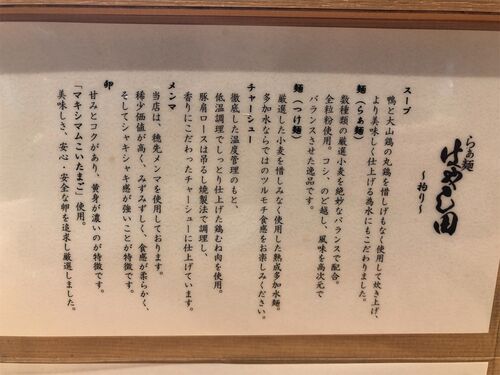 らぁ麺
はやし田
～拘り～
スープ
鴨と大山鶏の丸鶏を惜しげもなく使用して炊き上げ、
より美味しく仕上げる為水にもこだわりました。
麺（らぁ麺）
数種類の厳選小麦を絶妙なバランスで配合。
全粒粉使用。コシ、のど越し、風味を高次元で
バランスさせた逸品です。
麺（つけ麺）
厳選した小麦を惜しみなく使用した熟成多加水麺。
多加水ならではのツルモチ食感をお楽しみください。
チャーシュー
徹底した温度管理のもと、
低温調理でしっとり仕上げた鶏むね肉を使用。
豚肩ロースは吊るし焼製法で調理し、
香りにこだわったチャーシューに仕上げています。
メンマ
当店は、穂先メンマを使用しております。
稀少価値が高く、みずみずしく、食感が柔らかく、
そしてシャキシャキ感が強いことが特徴です。
卵
甘みとコクがあり、黄身が濃いのが特徴です。
「マキシマムこいたまご」使用。
美味しさ、安心・安全な卵を追求し厳選しました。